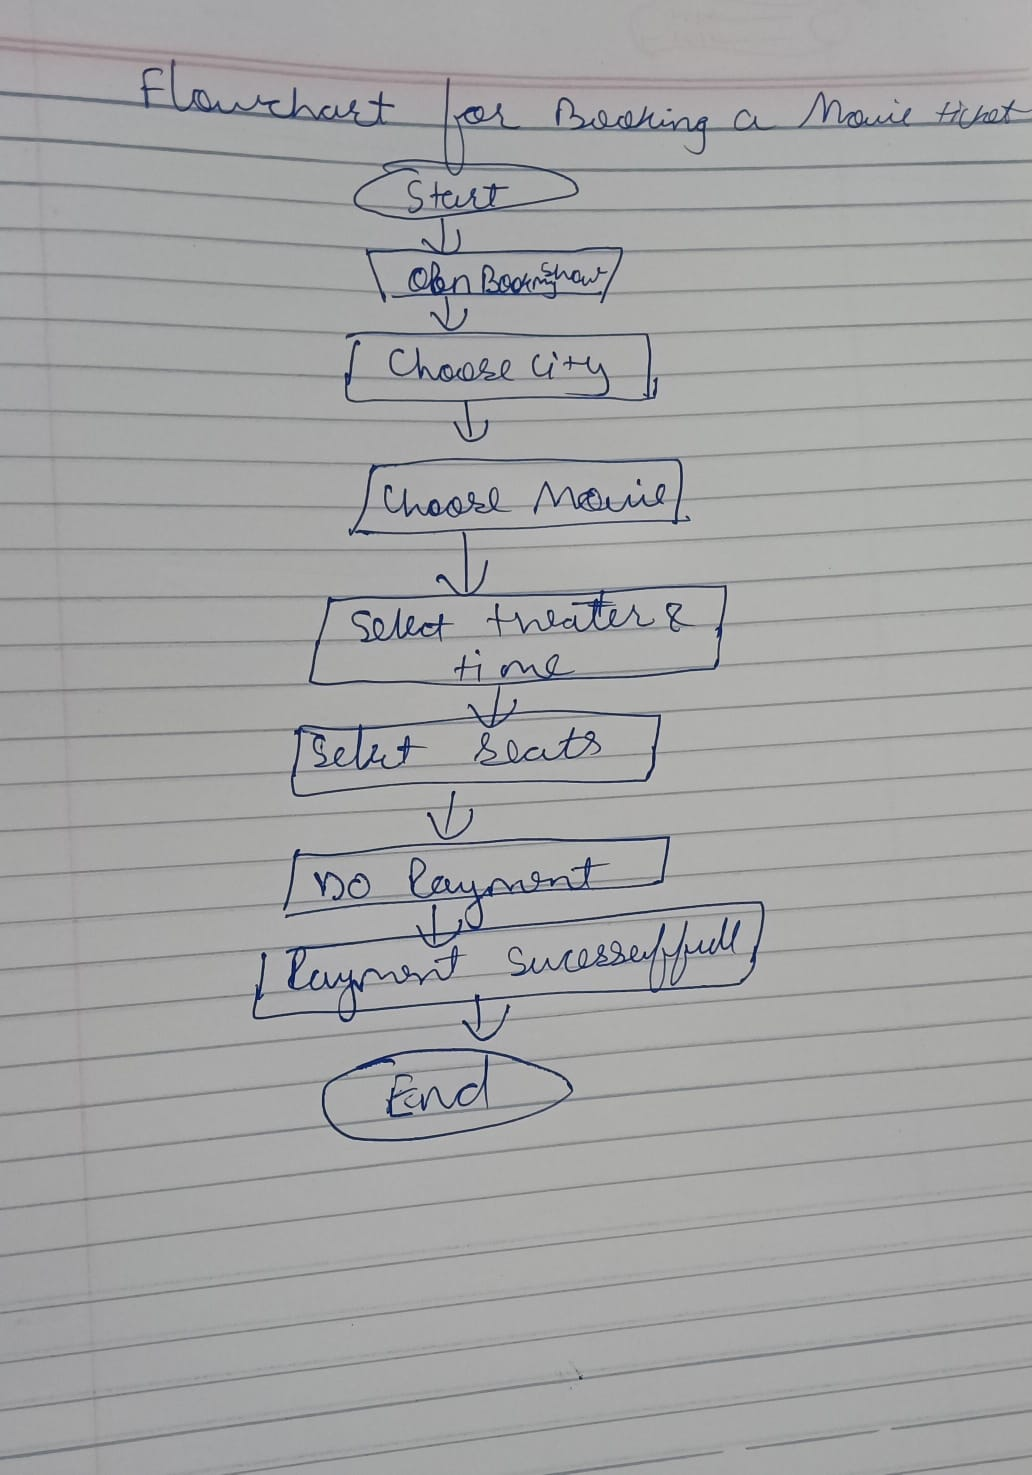 Flowchart for Booking a Movie ticket
Start
Open BookmyShow
Choose City
Choose Movie
Select theatter &
time
Select Seats
DO Payment
Payment Sucesseffull
End